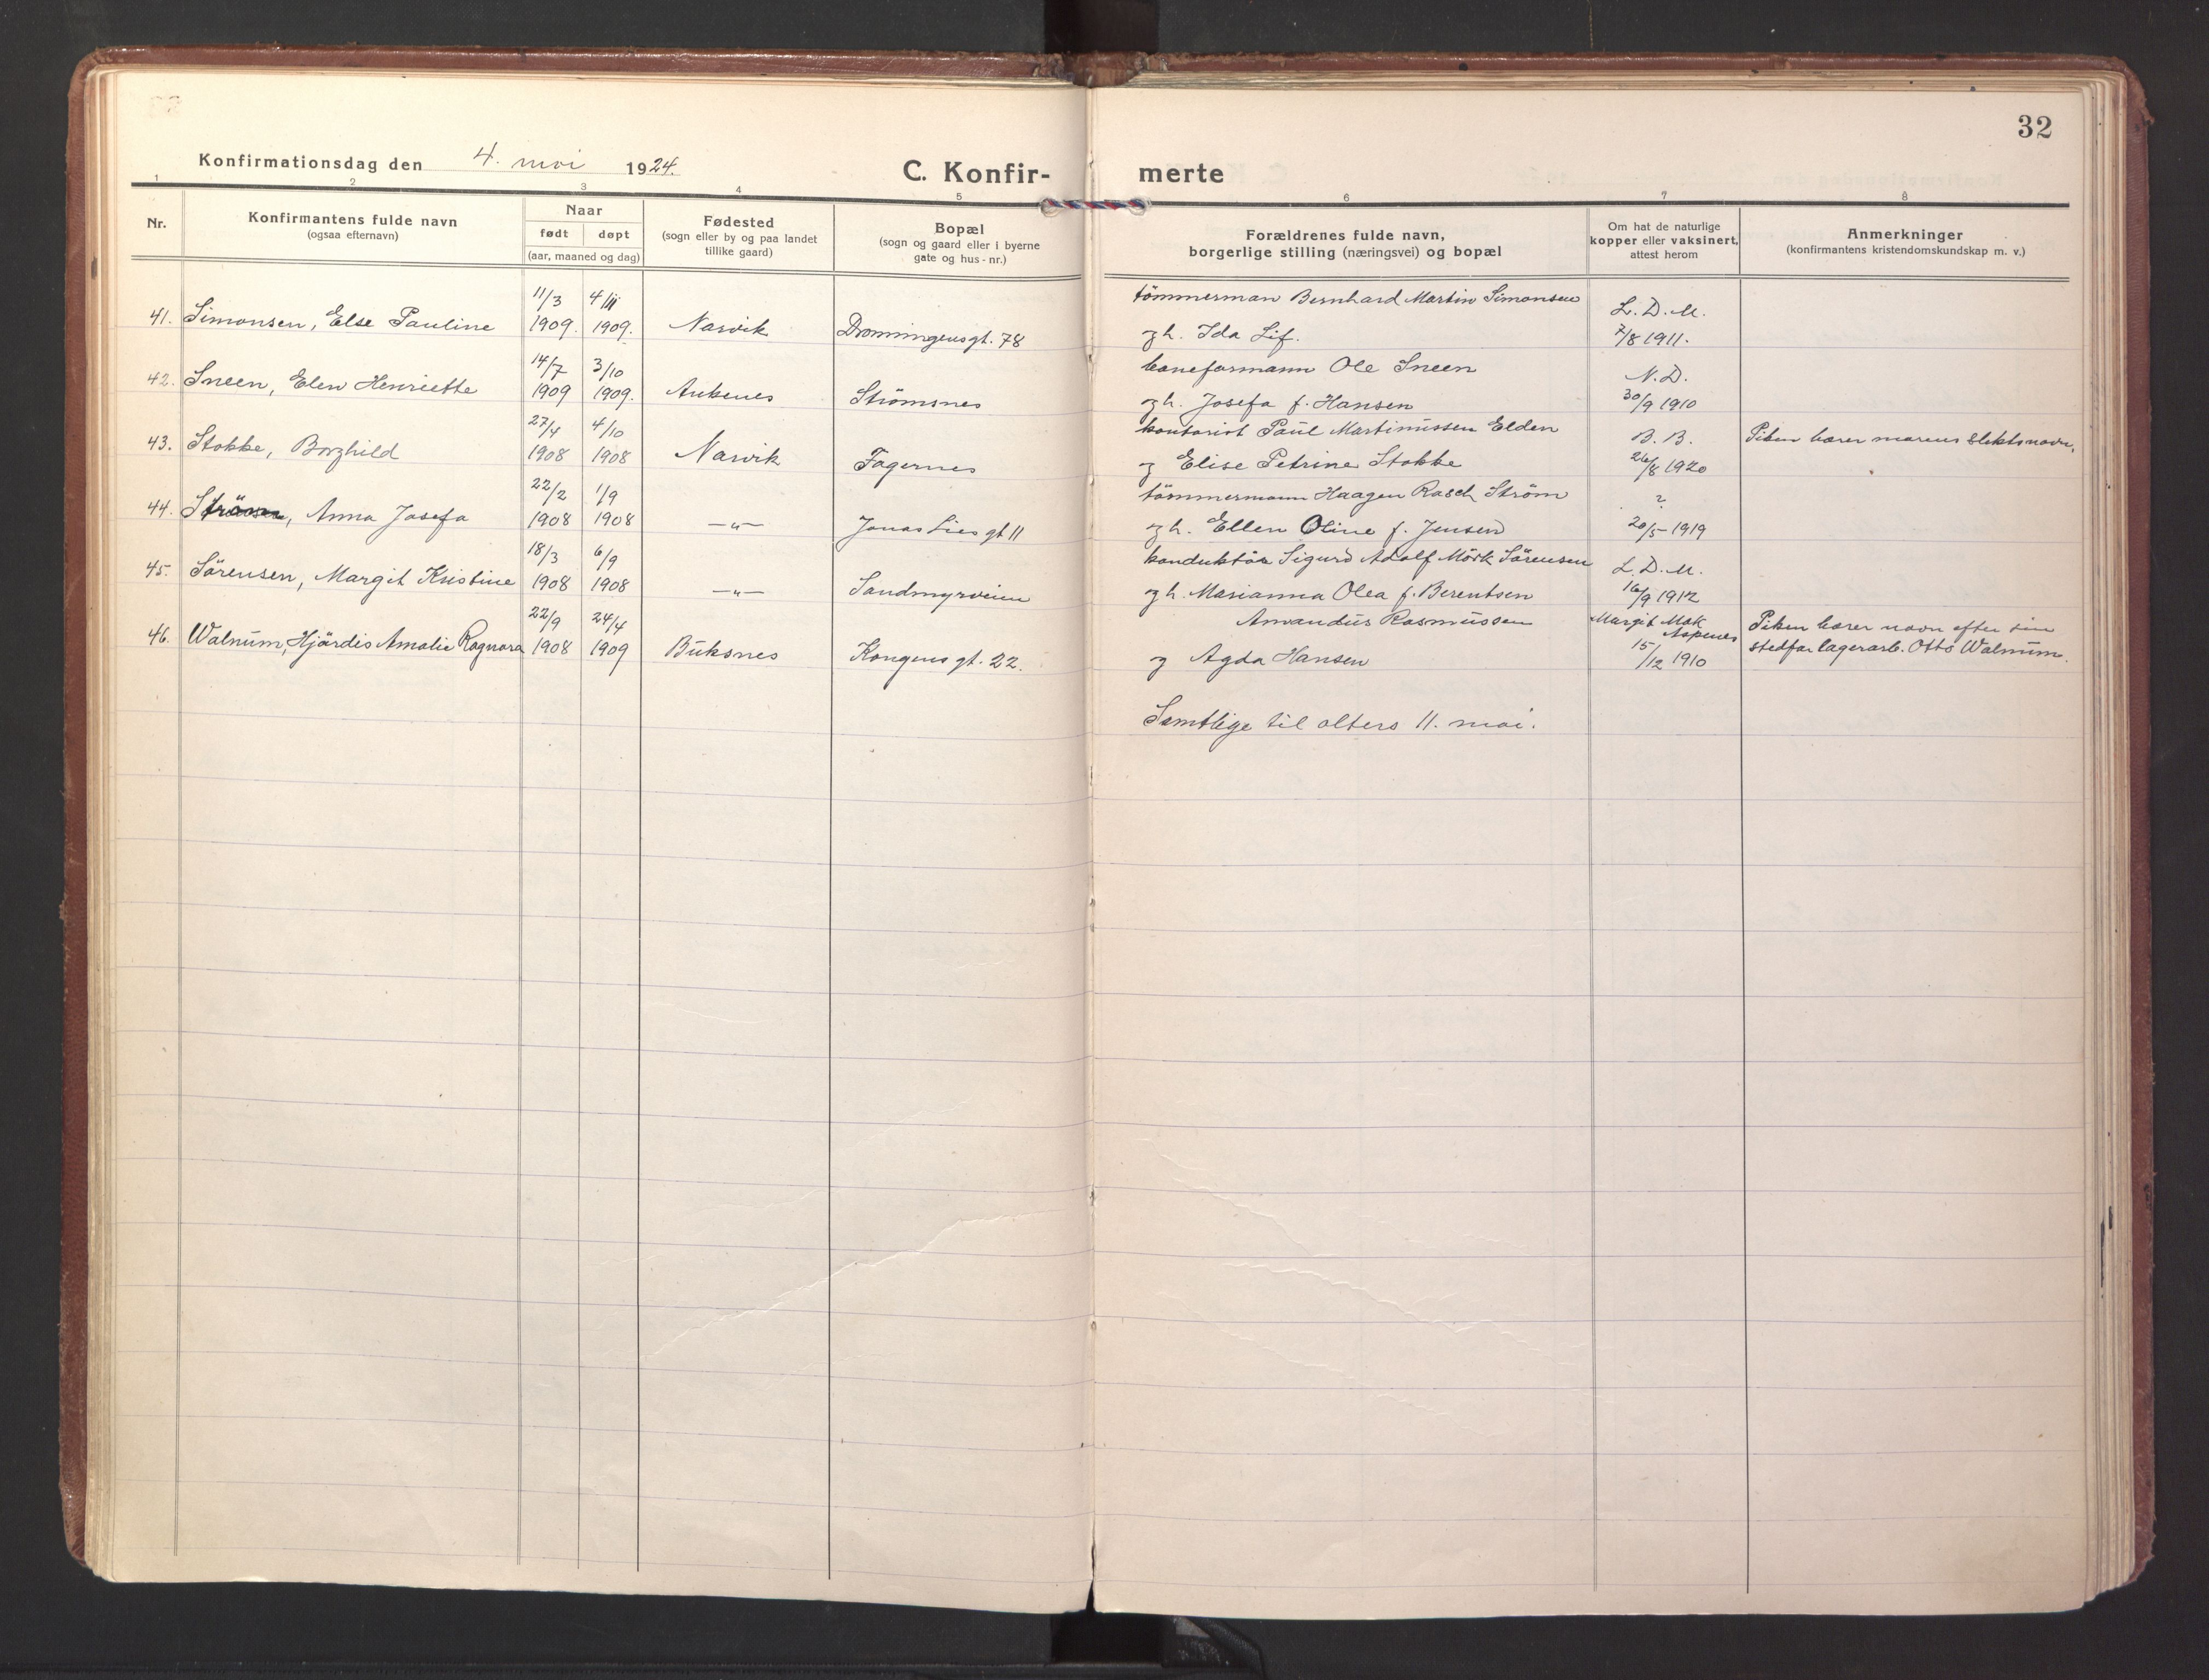 32
Konfirmationsdag den 4. mai 1924.
C. Konfir- merte
1 2 3 4 5 6 7 8
Nr.
Konfirmantens fulde navn
(ogsaa efternavn)
Naar
født døpt
(aar, maaned og dag)
Fødested
(sogn eller by og paa landet
tillike gaard)
Bopæl
(sogn og gaard eller i byerne
gate og hus-nr.)
Forældrenes fulde navn,
borgerlige stilling (næringsvei) og bopæl
Om hat de naturlige
kopper eller vaksinert,
attest herom
Anmerkninger
(konfirmantens kristendomskundskap m. v.)
11/3 4/ tömmerman Bernhard Martin Simonsen L. D. M.
41. Simonsen, Else Pauline 1909. 1909. Narvik Dronningensgt. 78 og h. Ida Lif. 7/8 1911.
14/7 3/10 baneformann Ole Sneen N. D.
42. Sneen, Elen Henriette 1909 1909. Ankenes Strömsnes og h. Josefa f. Hansen 30/9 1910
27/4 4/10 kontorist Paul Martinussen Elden B. B. Piken bærer morens slektsnavn.
43. Stokke, Borghild 1908 1908 Narvik Fagernes og Elise Petrine Stokke 26/8 1920
22/2 1/9 tömmermann Haagen Rasch Ström ?
44. Ström, Anna Josefa 1908 1908 —"— Jonas Lies gt 11 og h. Ellen Oline f. Jensen 20/5 1919
18/3 6/9 konduktör Sigurd Adolf Mörk Sörensen L. D. M.
45. Sörensen, Margit Kristine 1908 1908 —"— Sandmyrveien og h. Marianna Olea f. Berentsen 16/9 1912
22/9 24/4 Amandus Rasmussen Margit Mok Aspenes Piken bærer navn efter sin
46. Walnum, Hjördis Amalie Ragnara 1908 1909 Buksnes Kongens gt. 22. og Agda Hansen 15/12 1910 stedfar lagerarb. Otto Walnum.
Samtlige til alters 11. mai.